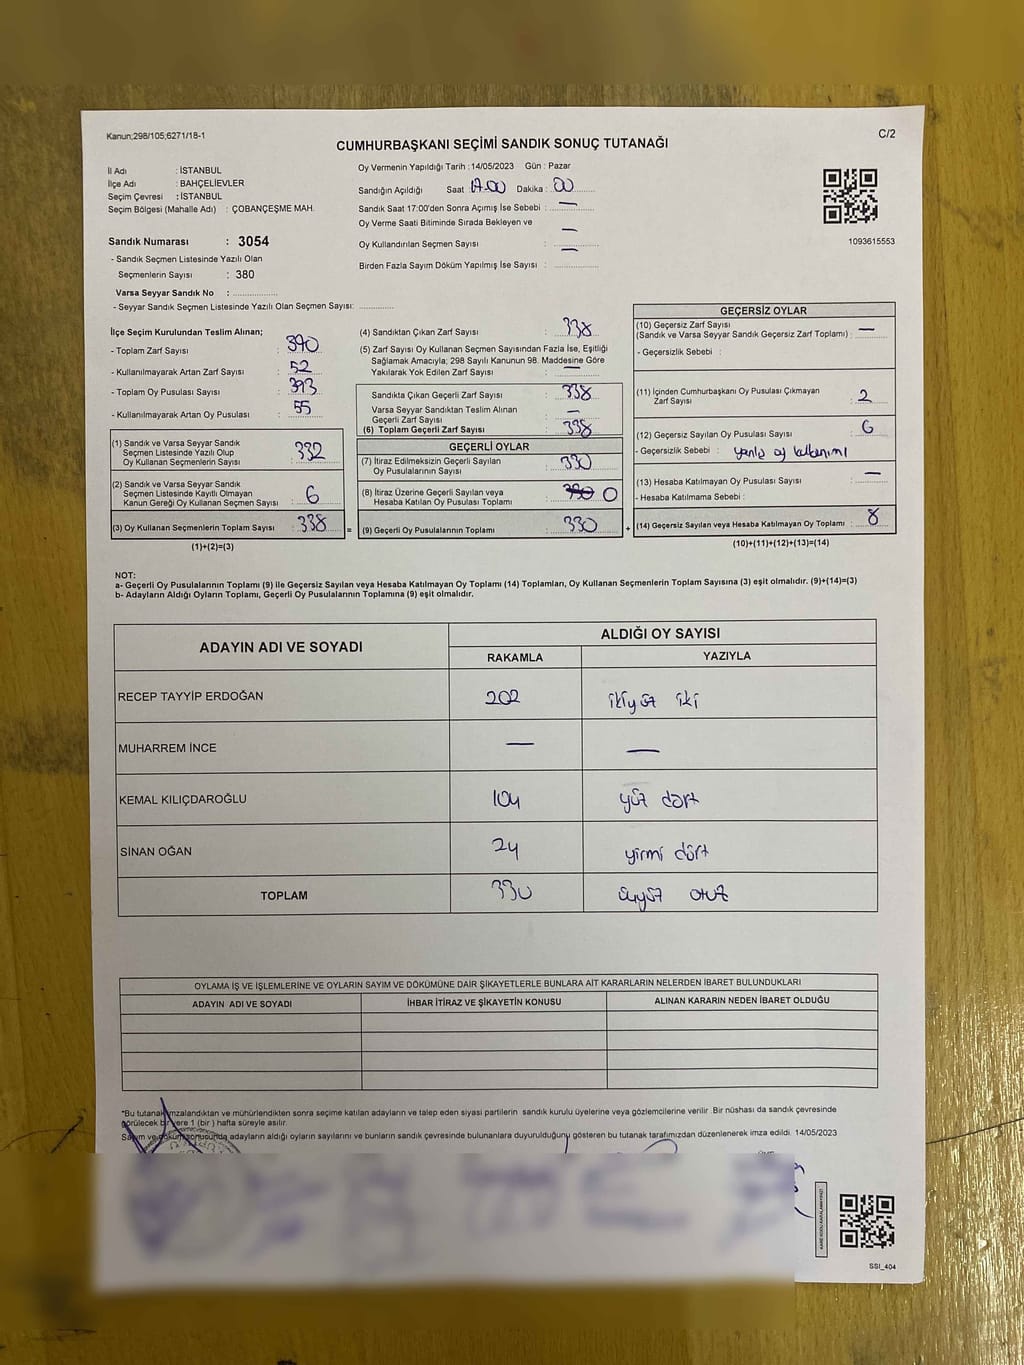 Kanun;298/105;6271/18-1
C/2
CUMHURBAŞKANI SEÇİMİ SANDIK SONUÇ TUTANAĞI
İl Adı : İSTANBUL
İlçe Adı : BAHÇELİEVLER
Seçim Çevresi : İSTANBUL
Seçim Bölgesi (Mahalle Adı) : ÇOBANÇEŞME MAH.
Sandık Numarası : 3054
- Sandık Seçmen Listesinde Yazılı Olan
Seçmenlerin Sayısı : 380
Varsa Seyyar Sandık No : ..............
- Seyyar Sandık Seçmen Listesinde Yazılı Olan Seçmen Sayısı: ............
Oy Vermenin Yapıldığı Tarih :14/05/2023 Gün : Pazar
Sandığın Açıldığı Saat 17.00 Dakika : 00
Sandık Saat 17:00'den Sonra Açımış İse Sebebi : —
Oy Verme Saati Bitiminde Sırada Bekleyen ve
Oy Kullandırılan Seçmen Sayısı : —
Birden Fazla Sayım Döküm Yapılmış İse Sayısı : —
1093615553
İlçe Seçim Kurulundan Teslim Alınan;
- Toplam Zarf Sayısı : 390
- Kullanılmayarak Artan Zarf Sayısı : 52
- Toplam Oy Pusulası Sayısı : 393
- Kullanılmayarak Artan Oy Pusulası : 55
(1) Sandık ve Varsa Seyyar Sandık
Seçmen Listesinde Yazılı Olup
Oy Kullanan Seçmenlerin Sayısı : 332
(2) Sandık ve Varsa Seyyar Sandık
Seçmen Listesinde Kayıtlı Olmayan
Kanun Gereği Oy Kullanan Seçmen Sayısı : 6
(3) Oy Kullanan Seçmenlerin Toplam Sayısı : 338
(1)+(2)=(3)
(4) Sandıktan Çıkan Zarf Sayısı : 338
(5) Zarf Sayısı Oy Kullanan Seçmen Sayısından Fazla İse, Eşitliği
Sağlamak Amacıyla; 298 Sayılı Kanunun 98. Maddesine Göre
Yakılarak Yok Edilen Zarf Sayısı : —
Sandıkta Çıkan Geçerli Zarf Sayısı : 338
Varsa Seyyar Sandıktan Teslim Alınan
Geçerli Zarf Sayısı : —
(6) Toplam Geçerli Zarf Sayısı : 338
GEÇERLİ OYLAR
(7) İtiraz Edilmeksizin Geçerli Sayılan
Oy Pusulasının Sayısı : 330
(8) İtiraz Üzerine Geçerli Sayılan veya
Hesaba Katılan Oy Pusulası Toplamı : 0
= (9) Geçerli Oy Pusulalarının Toplamı : 330 +
GEÇERSİZ OYLAR
(10) Geçersiz Zarf Sayısı
(Sandık ve Varsa Seyyar Sandık Geçersiz Zarf Toplamı) : —
- Geçersizlik Sebebi :
(11) İçinden Cumhurbaşkanı Oy Pusulası Çıkmayan
Zarf Sayısı : 2
(12) Geçersiz Sayılan Oy Pusulası Sayısı : 6
- Geçersizlik Sebebi : yanlış oy kullanımı
(13) Hesaba Katılmayan Oy Pusulası Sayısı : —
- Hesaba Katılmama Sebebi :
(14) Geçersiz Sayılan veya Hesaba Katılmayan Oy Toplamı : 8
(10)+(11)+(12)+(13)=(14)
NOT:
a- Geçerli Oy Pusulalarının Toplamı (9) ile Geçersiz Sayılan veya Hesaba Katılmayan Oy Toplamı (14) Toplamları, Oy Kullanan Seçmenlerin Toplam Sayısına (3) eşit olmalıdır. (9)+(14)=(3)
b- Adayların Aldığı Oyların Toplamı, Geçerli Oy Pusulalarının Toplamına (9) eşit olmalıdır.
ADAYIN ADI VE SOYADI ALDIĞI OY SAYISI
RAKAMLA YAZIYLA
RECEP TAYYİP ERDOĞAN 202 ikiyüz iki
MUHARREM İNCE — —
KEMAL KILIÇDAROĞLU 104 yüz dört
SİNAN OĞAN 24 yirmi dört
TOPLAM 330 üçyüz otuz
OYLAMA İŞ VE İŞLEMLERİNE VE OYLARIN SAYIM VE DÖKÜMÜNE DAİR ŞİKAYETLERLE BUNLARA AİT KARARLARIN NELERDEN İBARET BULUNDUKLARI
ADAYIN ADI VE SOYADI İHBAR İTİRAZ VE ŞİKAYETİN KONUSU ALINAN KARARIN NEDEN İBARET OLDUĞU
*Bu tutanak imzalandıktan ve mühürlendikten sonra seçime katılan adayların ve talep eden siyasi partilerin sandık kurulu üyelerine veya gözlemcilerine verilir. Bir nüshası da sandık çevresinde
görülecek bir yere 1 (bir) hafta süreyle asılır.
Sayım ve döküm sonucunda adayların aldığı oyların sayılarını ve bunların sandık çevresinde bulunanlara duyurulduğunu gösteren bu tutanak tarafımızdan düzenlenerek imza edildi. 14/05/2023
SSI_404